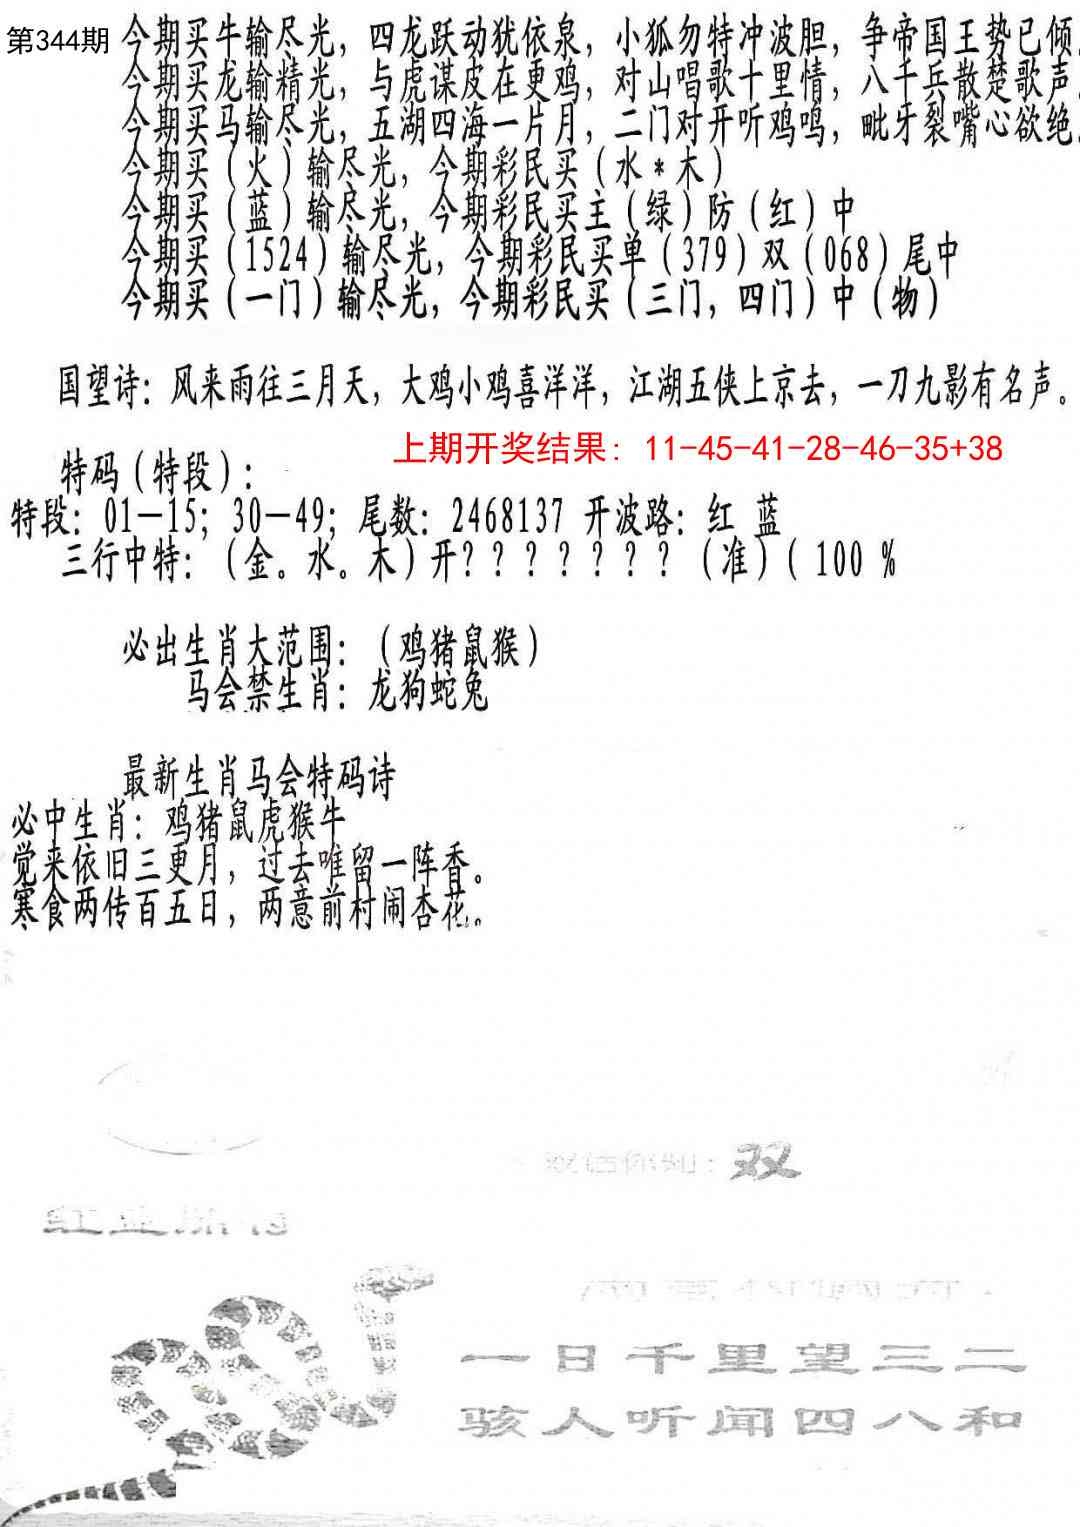 第344期
今期买牛输尽光，四龙跃动犹依泉，小狐勿特冲波胆，争帝国王势已倾
今期买龙输精光，与虎谋皮在更鸡，对山唱歌十里情，八千兵散楚歌声
今期买马输尽光，五湖四海一片月，二门对开听鸡鸣，毗牙裂嘴心欲绝
今期买（火）输尽光，今期彩民买（水*木）
今期买（蓝）输尽光，今期彩民买主（绿）防（红）中
今期买（1524）输尽光，今期彩民买单（379）双（068）尾中
今期买（一门）输尽光，今期彩民买（三门，四门）中（物）
国望诗：风来雨往三月天，大鸡小鸡喜洋洋，江湖五侠上京去，一刀九影有名声。
上期开奖结果：11-45-41-28-46-35+38
特码（特段）：
特段：01—15；30—49；尾数：2468137 开波路：红 蓝
三行中特：（金。水。木）开？？？？？？？（准）（100 %
必出生肖大范围：（鸡猪鼠猴）
马会禁生肖：龙狗蛇兔
最新生肖马会特码诗
必中生肖：鸡猪鼠虎猴牛
觉来依旧三更月，过去唯留一阵香。
寒食两传百五日，两意前村闹杏花。
双
一日千里望三二
骇人听闻四八和